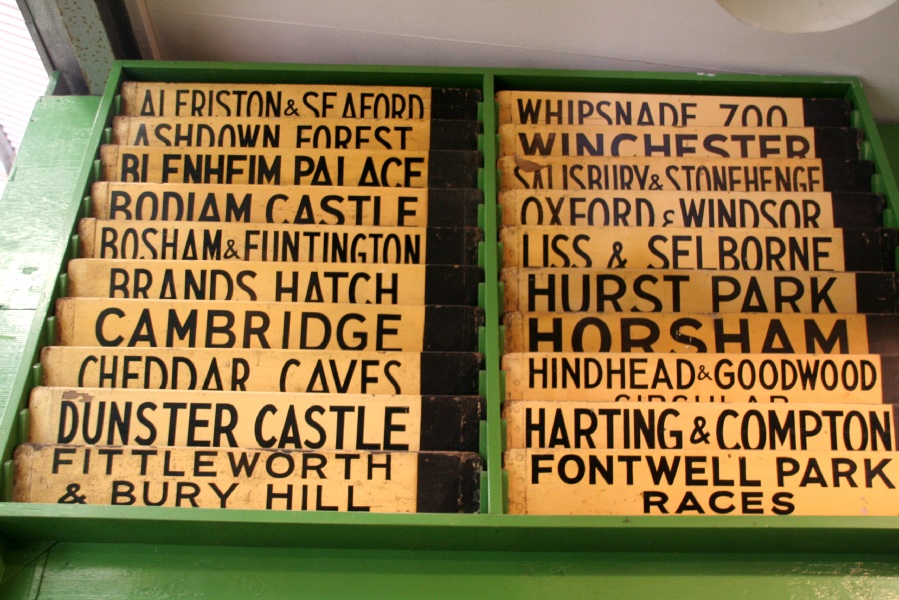 ALFRISTON & SEAFORD
ASHDOWN FOREST
BLENHEIM PALACE
BODIAM CASTLE
BOSHAM & FUNTINGTON
BRANDS HATCH
CAMBRIDGE
CHEDDAR CAVES
DUNSTER CASTLE
FITTLEWORTH
& BURY HILL
WHIPSNADE ZOO
WINCHESTER
SALISBURY & STONEHENGE
OXFORD & WINDSOR
LISS & SELBORNE
HURST PARK
HORSHAM
HINDHEAD & GOODWOOD
CIRCULAR
HARTING & COMPTON
FONTWELL PARK
RACES